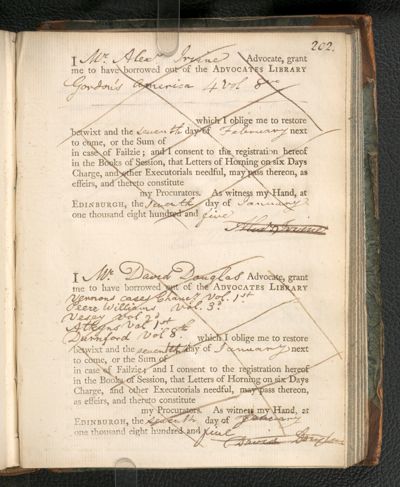 202.
I Mr. Alexr Irvine Advocate, grant
me to have borrowed out of the ADVOCATES LIBRARY
Gordon's America 4 vol 8vo
which I oblige me to restore
betwixt and the seventh day of February next
to come, or the Sum of
in case of Failzie; and I consent to the registration hereof
in the Books of Session, that Letters of Horning on six Days
Charge, and other Executorials needful, may pass thereon, as
effeirs, and thereto constitute
my Procurators. As witness my Hand, at
EDINBURGH, the seventh day of January
one thousand eight hundred and five
Alexr Irvine
I Mr. David Douglas Advocate, grant
me to have borrowed out of the ADVOCATES LIBRARY
Vernons cases Chancy Vol. 1st
Peere Williams Vol. 3d
Vesey Vol 2d
Atkyns Vol 1st
Durnford Vol 8th which I oblige me to restore
betwixt and the seventh day of January next
to come, or the Sum of
in case of Failzie; and I consent to the registration hereof
in the Books of Session, that Letters of Horning on six Days
Charge, and other Executorials needful, may pass thereon,
as effeirs, and thereto constitute
my Procurators. As witness my Hand, at
EDINBURGH, the seventh day of January
one thousand eight hundred and five
David Douglas